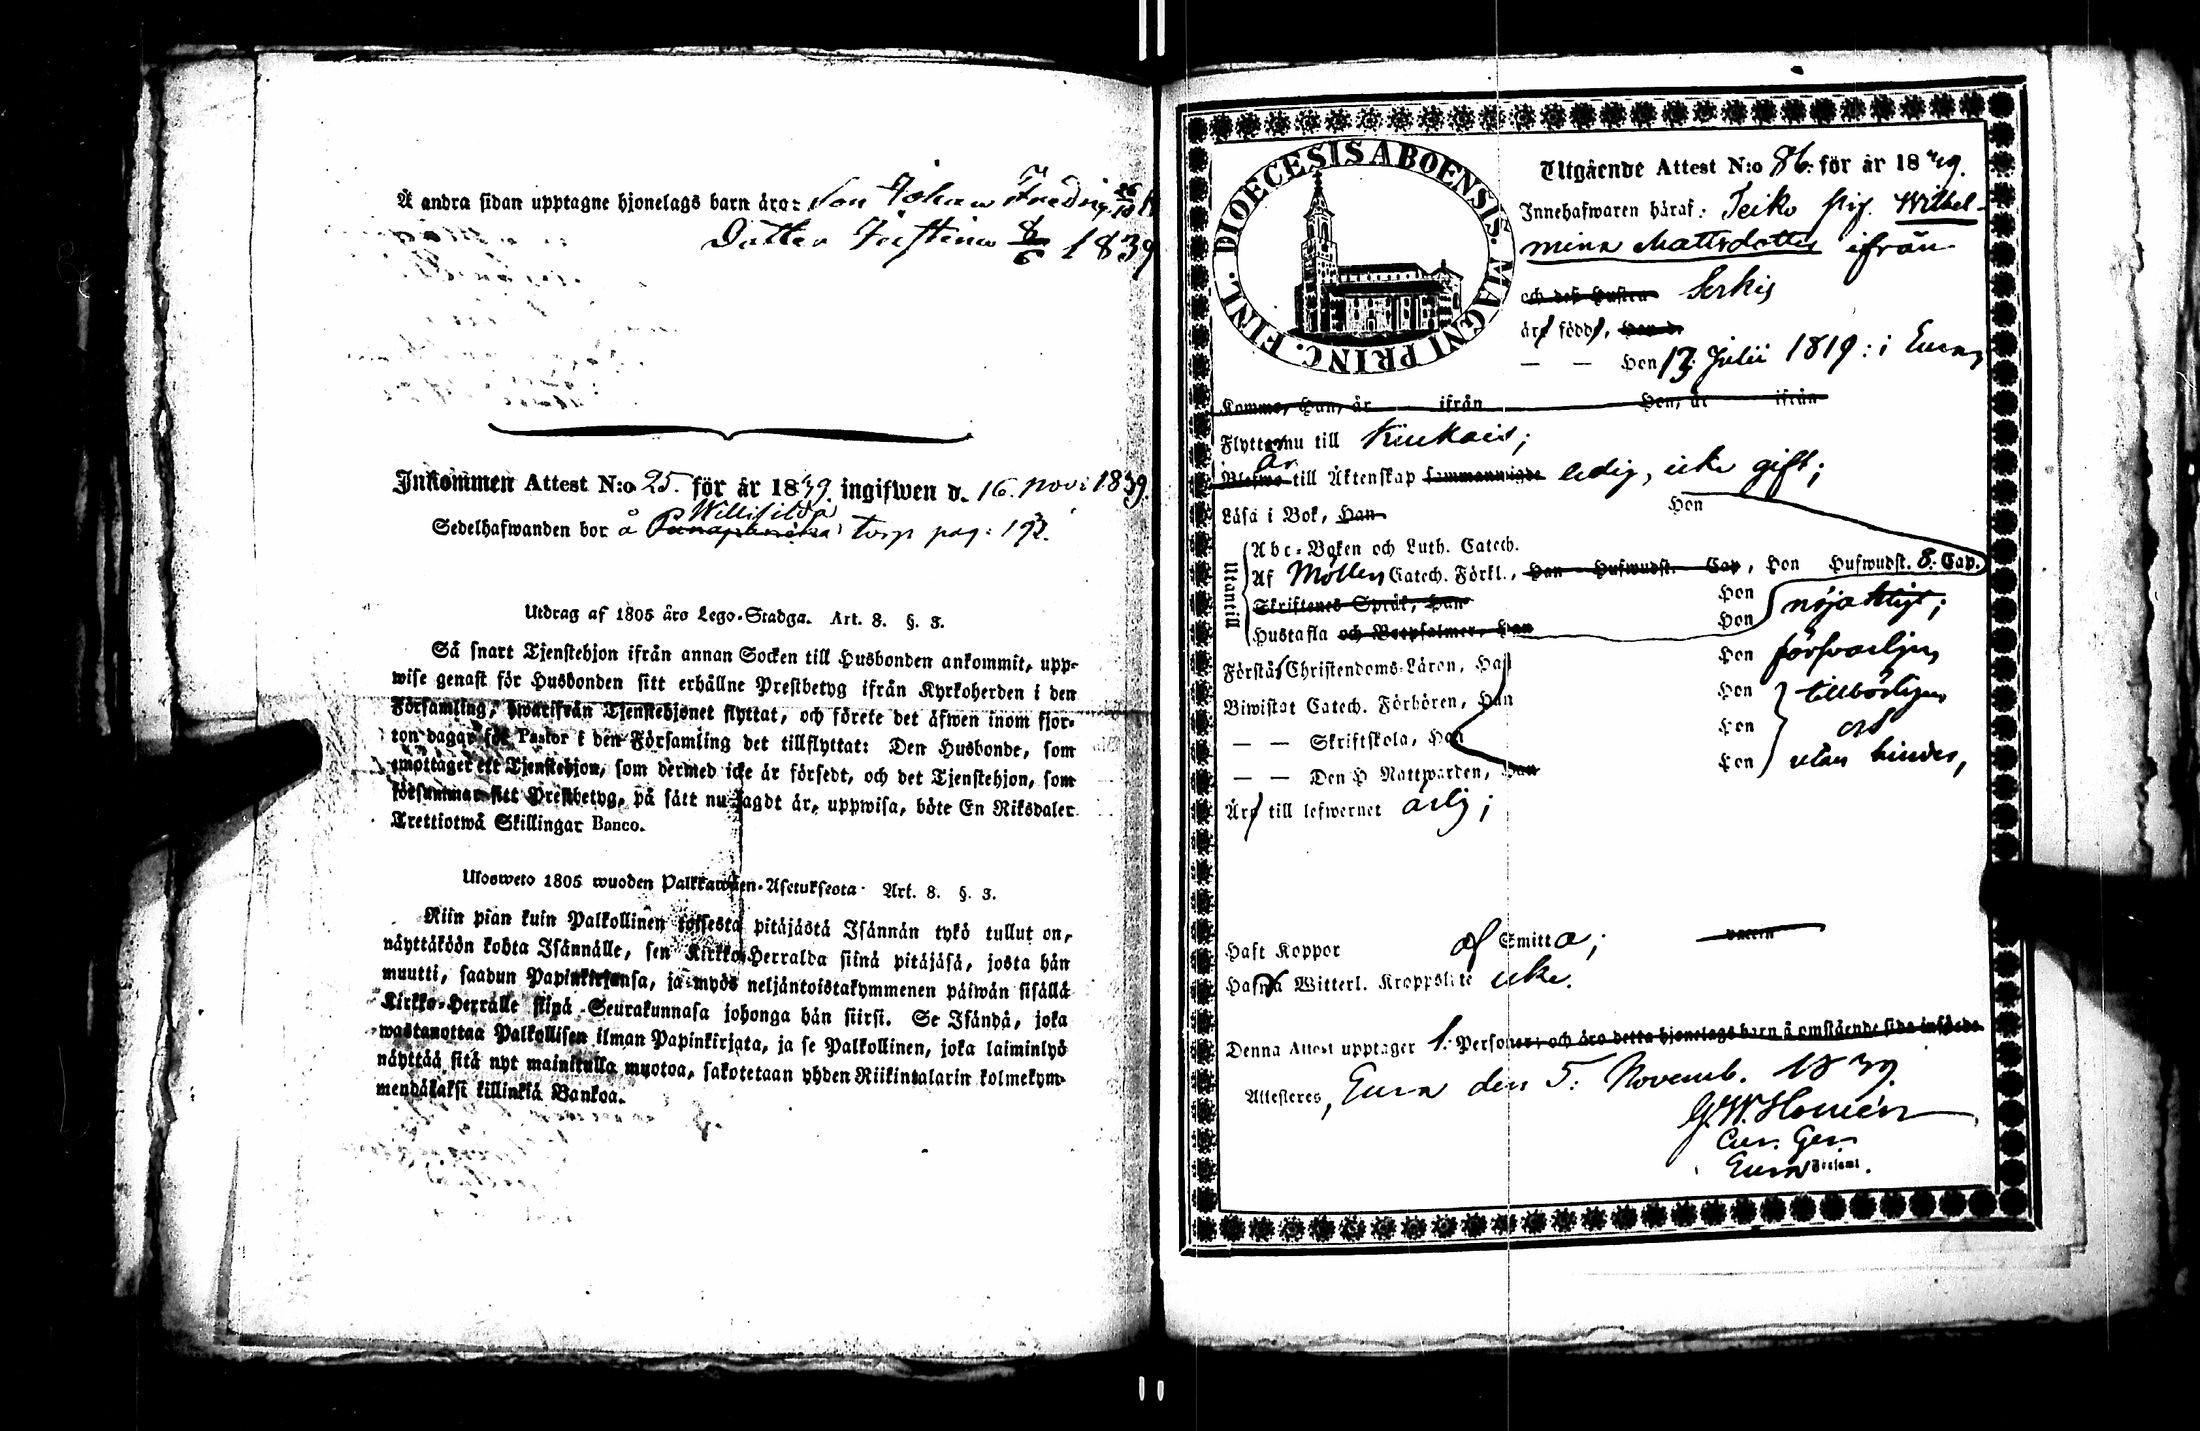 Å andra sidan upptagne hjonelags barn äro: Son Johan Fredrig 26/10
Dotter 8/6 1839
Inkommen Attest N:o 25. för år 1839. ingifwen d. 16. Nov: 1839.
Willisilda
Sedelhafwanden bor å torp pag: 192.
Utdrag af 1805 års Lego-Stadga. Art. 8. §. 3.
Så snart Tjenstehjon ifrån annan Socken till Husbonden ankommit, upp-
wise genast för Husbonden sitt erhållne Prestbetyg ifrån Kyrkoherden i den
Församling, hwarifrån Tjenstehjonet flyttat, och förete det äfwen inom fjor-
ton dagar för Pastor i den Församling det tillflyttat: Den Husbonde, som
emottager ett Tjenstehjon, som dermed icke är försedt, och det Tjenstehjon, som
försummar sitt Prestbetyg, på sätt nu sagdt är, uppwisa, böte En Riksdaler
Trettiotwå Skillingar Banco.
Ulosweto 1805 wuoden Palkkawäen-Asetuksesta. Art. 8. §. 3.
Niin pian kuin Palkollinen toisesta pitäjästä Isännän tykö tullut on,
näyttäköön kohta Isännälle, sen Kirkko-Herralda siinä pitäjäsä, josta hän
muutti, saadun Papinkirjansa, ja myös neljäntoistakymmenen päiwän sisällä
Kirkko-Herralle siinä Seurakunnasa johonga hän siirsi. Se Isändä, joka
wastanottaa Palkollisen ilman Papinkirjata, ja se Palkollinen, joka laiminlyö
näyttää sitä nyt mainitulla muotoa, sakotetaan yhden Riikintalarin kolmekym-
mendäkaksi killinkiä Bankoa.
DIOECESIS ABOENSIS. MAGNI PRINC. FINL.
Utgående Attest N:o 86. för år 1839.
Innehafwaren häraf: pig. Wilhel-
mina Mattsdotter ifrån
och dess Hustru Serkis
äro född, Han d.
— — Hon 13. Julii 1819: i Eura,
Komne, Han, år ifrån Hon, år ifrån
Flyttar nu till Kiukais;
är
Blefwo till Äktenskap sammanwigde ledig, icke gift;
Läsa i Bok, Han Hon
Utantill
Abc-Boken och Luth. Catech.
Af Möllers Catech. Förkl., Han Hufwudst. Cap, Hon Hufwudst. 8. Cap.
Skriftenes Språk, Han Hon nöjaktigt;
Hustafla och Botpsalmer, Han Hon
Förstår Christendoms-Läran, Han Hon försvarligen
Biwistat Catech. Förhören, Han Hon tillbörligen
— — Skriftskola, Han Hon och
— — Den H Nattwarden, Han Hon utan hinder,
Äro till lefwernet ärlig;
Haft Koppor af Smitta; vaccin
Hafwa Witterl. Kroppslyte icke.
Denna Attest upptager 1. Personer: och äro detta hjonelags barn å omstående sida införde.
Attesteres, Eura den 5. Novemb. 1839.
G. W. Homén
Cur. Ger.
Eura Församl.